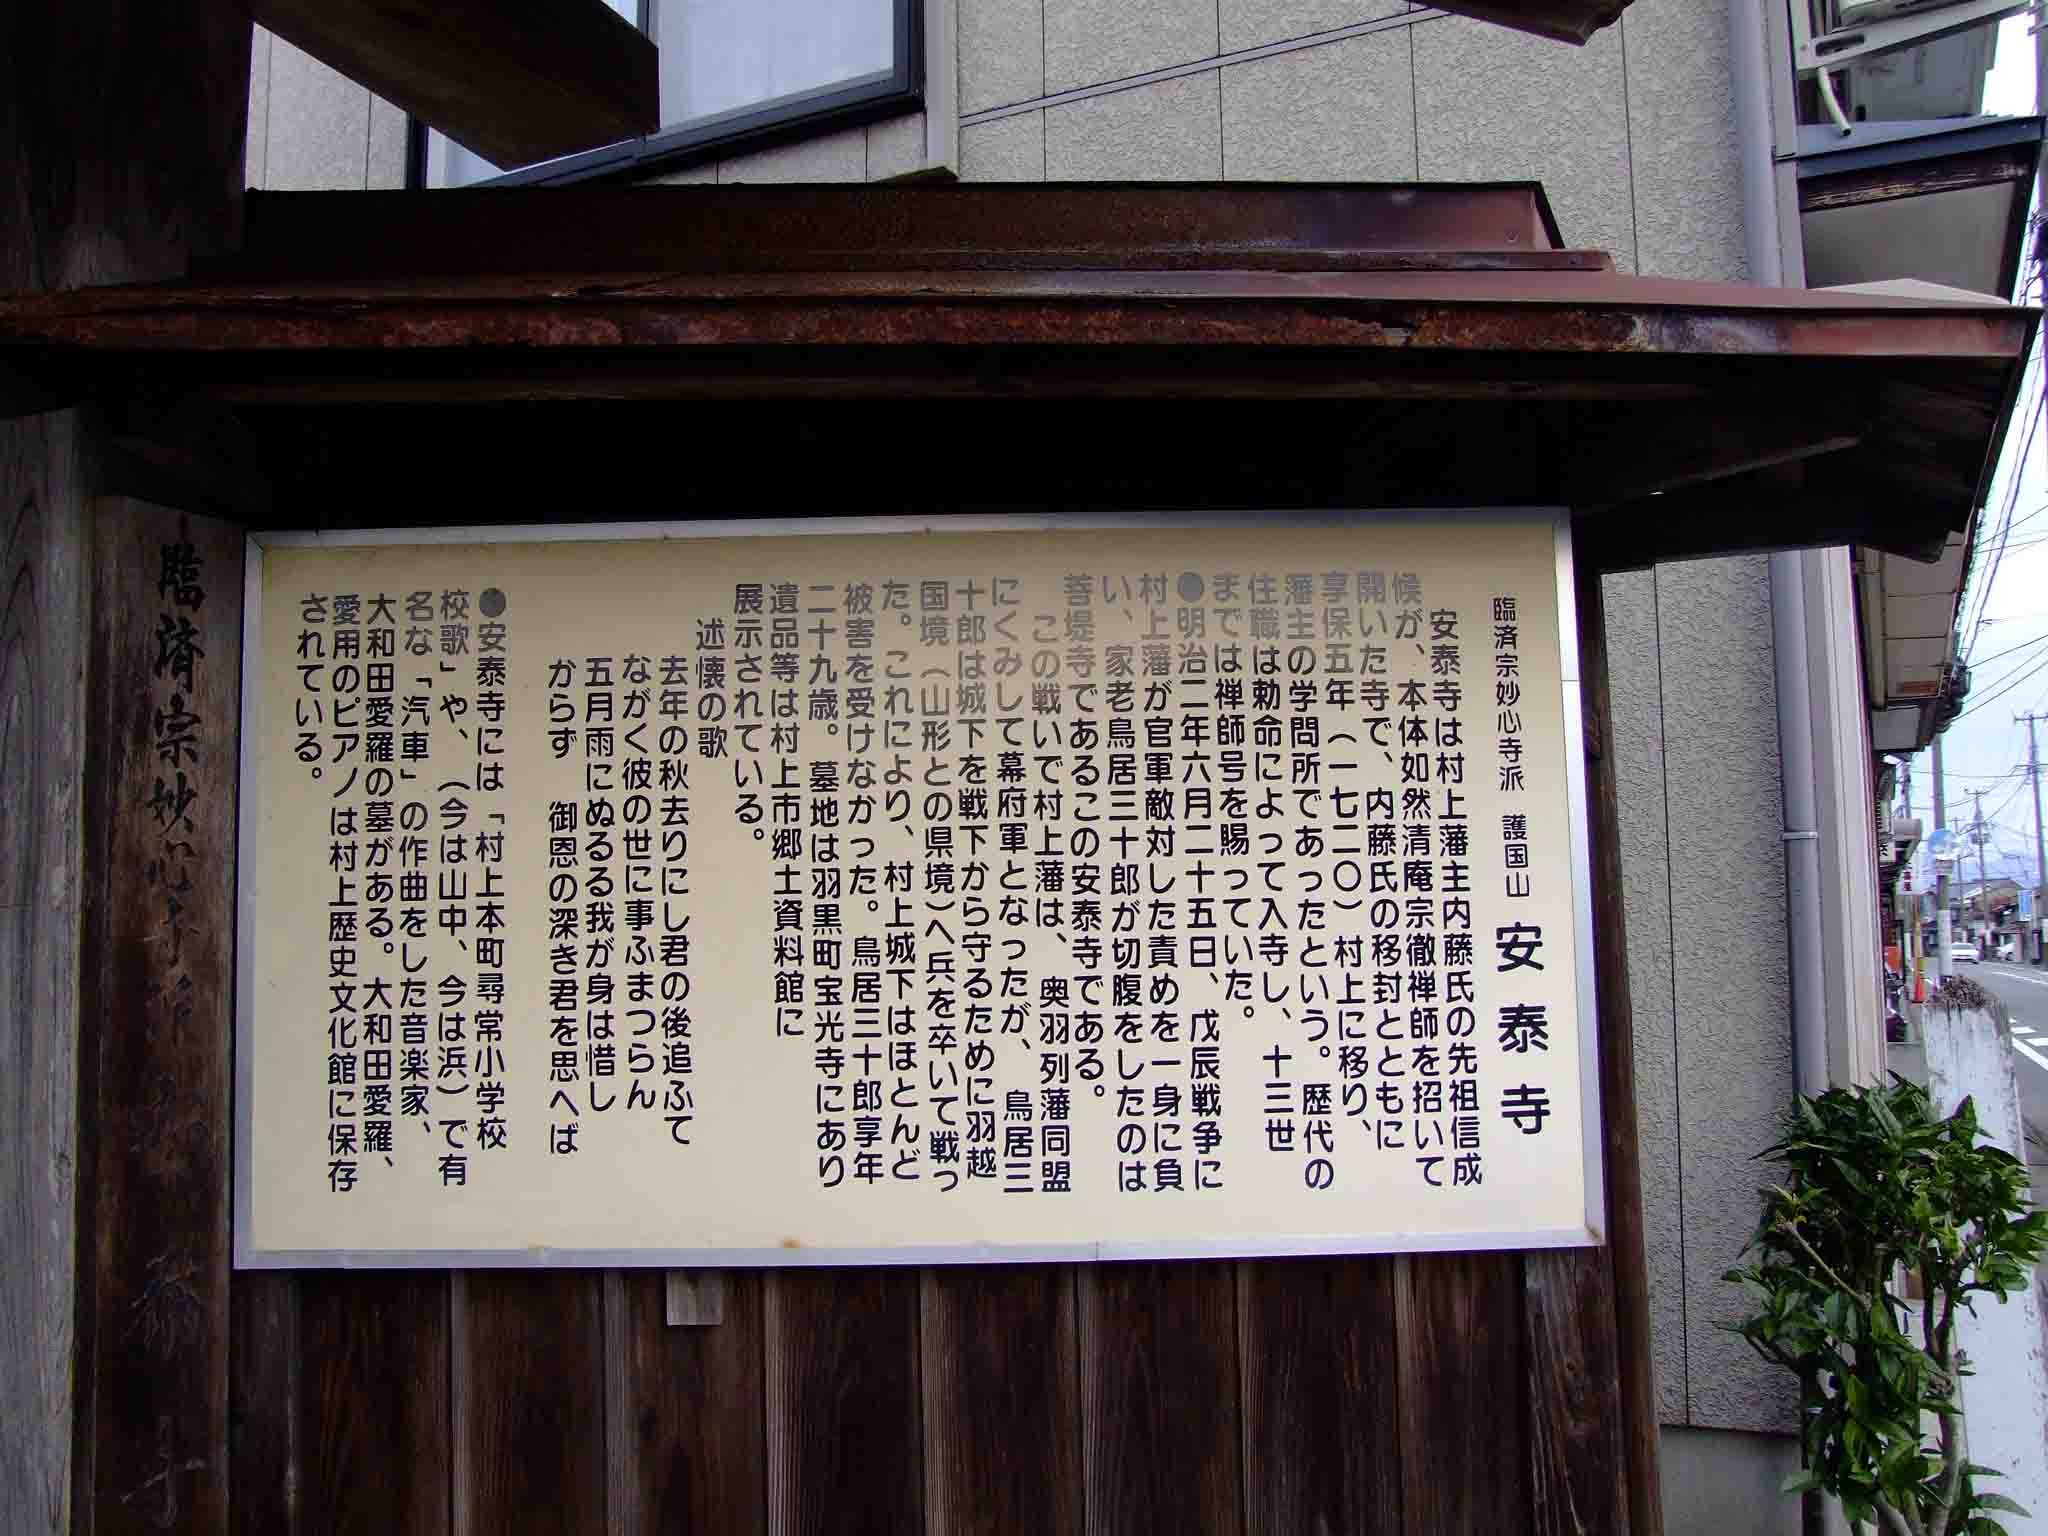 臨済宗妙心寺派 護国山 安泰寺
安泰寺は村上藩主内藤氏の先祖信成
候が、本体如然清庵宗徹禅師を招いて
開いた寺で、内藤氏の移封とともに
享保五年(一七二〇)村上に移り、
藩主の学問所であったという。歴代の
住職は勅命によって入寺し、十三世
までは禅師号を賜っていた。
●明治二年六月二十五日、戊辰戦争に
村上藩が官軍敵対した責めを一身に負
い、家老鳥居三十郎が切腹をしたのは
菩堤寺であるこの安泰寺である。
この戦いで村上藩は、奥羽列藩同盟
にくみして幕府軍となったが、鳥居三
十郎は城下を戦下から守るために羽越
国境(山形との県境)へ兵を卒いて戦っ
た。これにより、村上城下はほとんど
被害を受けなかった。鳥居三十郎享年
二十九歳。墓地は羽黒町宝光寺にあり
遺品等は村上市郷土資料館に
展示されている。
述懐の歌
去年の秋去りにし君の後追ふて
ながく彼の世に事ふまつらん
五月雨にぬるる我が身は惜し
からず 御恩の深き君を思へば
●安泰寺には「村上本町尋常小学校
校歌」や、(今は山中、今は浜)で有
名な「汽車」の作曲をした音楽家、
大和田愛羅の墓がある。大和田愛羅、
愛用のピアノは村上歴史文化館に保存
されている。
臨済宗妙心寺派